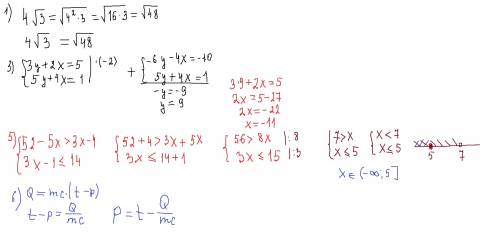 1) 4√3 = √(4²·3) = √(16·3) = √48
4√3 = √48
3) { 3y+2x=5 |·(-2)
5y+4x=1
+ { -6y-4x=-10
5y+4x=1
-y=-9
y=9
3·9+2x=5
2x=5-27
2x=-22
x=-11
5) { 52-5x>3x-4
3x-1≤14
{ 52+4>3x+5x
3x≤14+1
{ 56>8x |:8
3x≤15 |:3
{ 7>x
x≤5
{ x<7
x≤5
5 7
x∈(-∞;5]
6) Q=mc·(t-p)
t-p=Q/mc
p=t-Q/mc